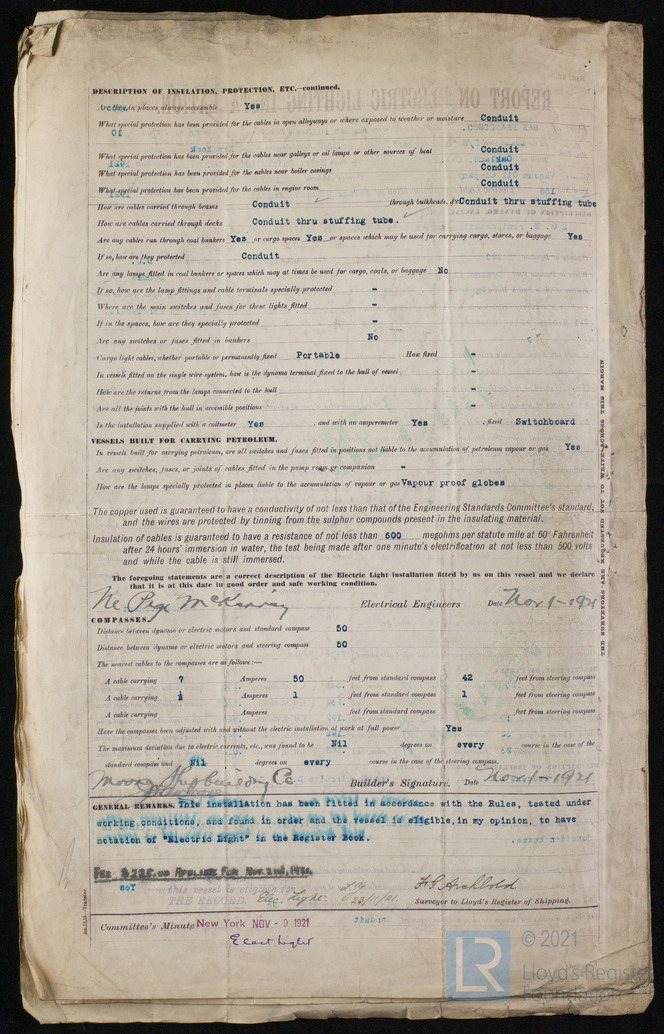 DESCRIPTION OF INSULATION, PROTECTION, ETC.—continued.
Are they in places always accessible Yes
What special protection has been provided for the cables in open alleyways or where exposed to weather or moisture Conduit
What special protection has been provided for the cables near galleys or oil lamps or other sources of heat Conduit
What special protection has been provided for the cables near boiler casings Conduit
What special protection has been provided for the cables in engine room Conduit
How are cables carried through beams Conduit through bulkheads, &c Conduit thru stuffing tube
How are cables carried through decks Conduit thru stuffing tube.
Are any cables run through coal bunkers Yes or cargo spaces Yes or spaces which may be used for carrying cargo, stores, or baggage Yes
If so, how are they protected Conduit
Are any lamps fitted in coal bunkers or spaces which may at times be used for cargo, coals, or baggage No
If so, how are the lamp fittings and cable terminals specially protected -
Where are the main switches and fuses for these lights fitted -
If in the spaces, how are they specially protected -
Are any switches or fuses fitted in bunkers No
Cargo light cables, whether portable or permanently fixed Portable How fixed -
In vessels fitted on the single wire system, how is the dynamo terminal fixed to the hull of vessel -
How are the returns from the lamps connected to the hull -
Are all the joints with the hull in accessible positions -
Is the installation supplied with a voltmeter Yes , and with an amperemeter Yes , fixed Switchboard
VESSELS BUILT FOR CARRYING PETROLEUM.
In vessels built for carrying petroleum, are all switches and fuses fitted in positions not liable to the accumulation of petroleum vapour or gas Yes
Are any switches, fuses, or joints of cables fitted in the pump room or companion -
How are the lamps specially protected in places liable to the accumulation of vapour or gas Vapour proof globes
The copper used is guaranteed to have a conductivity of not less than that of the Engineering Standards Committee's standard,
and the wires are protected by tinning from the sulphur compounds present in the insulating material.
Insulation of cables is guaranteed to have a resistance of not less than 600 megohms per statute mile at 60° Fahrenheit
after 24 hours' immersion in water, the test being made after one minute's electrification at not less than 500 volts
and while the cable is still immersed.
The foregoing statements are a correct description of the Electric Light installation fitted by us on this vessel and we declare
that it is at this date in good order and safe working condition.
Electrical Engineers Date Nov 1-1921
COMPASSES.
Distance between dynamo or electric motors and standard compass 50
Distance between dynamo or electric motors and steering compass 50
The nearest cables to the compasses are as follows:—
A cable carrying 7 Amperes 50 feet from standard compass 42 feet from steering compass
A cable carrying Amperes 1 feet from standard compass 1 feet from steering compass
A cable carrying Amperes feet from standard compass feet from steering compass
Have the compasses been adjusted with and without the electric installation at work at full power Yes
The maximum deviation due to electric currents, etc., was found to be Nil degrees on every course in the case of the
standard compass and Nil degrees on every course in the case of the steering compass.
Moore Shipbuilding Co Builder's Signature. Date Nov. 1-1921
GENERAL REMARKS. This installation has been fitted in accordance with the Rules, tested under
working conditions, and found in order and the vessel is eligible, in my opinion, to have
notation of "Electric Light" in the Register Book.
this vessel is eligible for
THE RECORD. Elec. Light. 23/11/21
Surveyor to Lloyd's Register of Shipping.
Committee's Minute New York NOV - 9 1921
Elect Light
THE SURVEYORS ARE REQUESTED NOT TO WRITE ACROSS THIS MARGIN
LR
© 2021
Lloyd's Register
Foundation